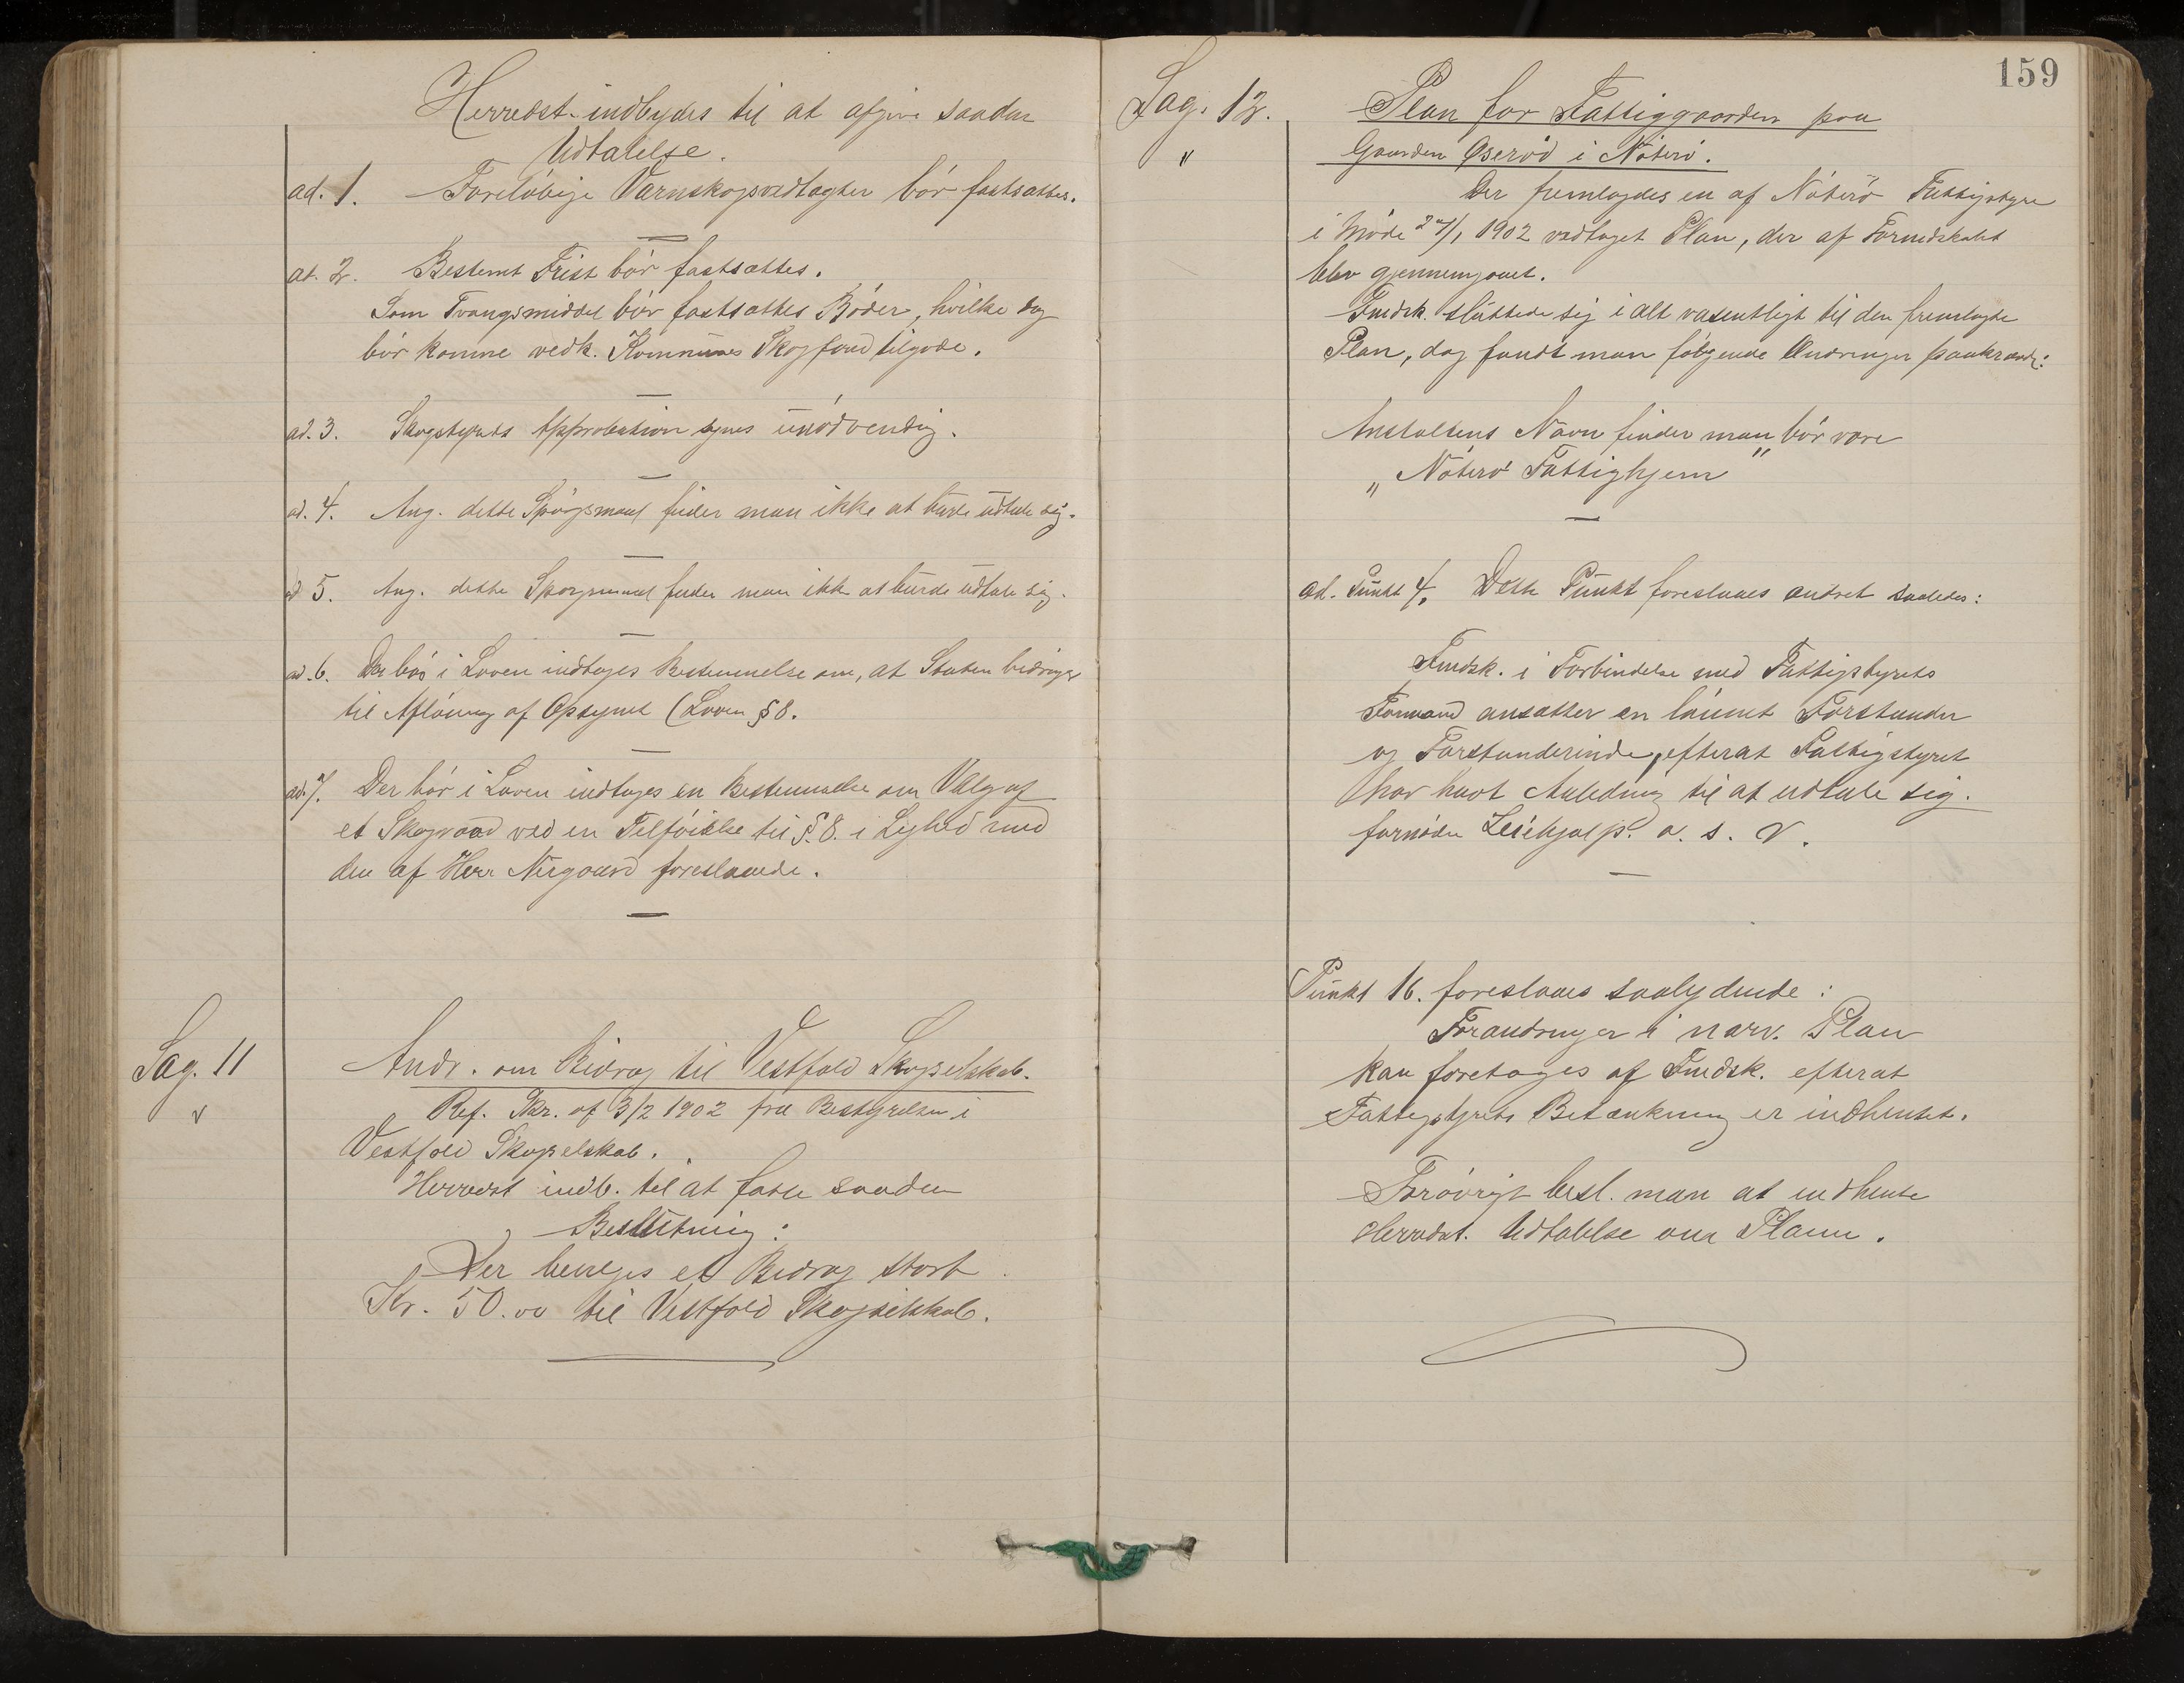 Herredst. indbydes til at afgive saadan
Udtalelse.
ad. 1. Foreløbige Værnskogsvedtægter bør fastsættes.
ad. 2. Bestemt Frist bør fastsættes.
Som Tvangsmiddel bør fastsættes Bøder, hvilke dog
bør komme vedk. Kommunes Skogfond tilgode.
ad. 3. Skogstyrets Approbation synes unødvendig.
ad. 4. Ang. dette Spørgsmaal finder man ikke at burde udtale sig.
ad 5. Ang. dette Spørgsmaal finder man ikke at burde udtale sig.
ad. 6. Der bør i Loven indtages Bestemmelse om, at Staten bidrager
til Aflønning af Opsynet (Loven § 8.
ad. 7. Der bør i Loven indtages en Bestemmelse om Valg af
et Skograad ved en Tilføielse til §. 8. i Lighed med
den af Herr Nergaard foreslaaede.
Sag. 11
Andr. om Bidrag til Vestfold Skogselskab.
Ref. Skr. af 3/2 1902 fra Bestyrelsen i
Vestfold Skogselskab.
Herredst indb. til at fatte saadan
Beslutning:
Der bevilges et Bidrag stort
Kr. 50.00 til Vestfold Skogselskab.
159
Sag. 12.
Plan for Fattiggaarden paa
Gaarden Øserød i Nøterø.
Der fremlagdes en af Nøterø Fattigstyre
i Møde 27/1 1902 vedtaget Plan, der af Formandskabet
blev gjennemgaaet.
Fmdsk. sluttede sig i alt væsentligt til den fremlagte
Plan, dog fandt man følgende Ændringer paakrævede:
Anstaltens Navn finder man bør være
„Nøterø Fattighjem"
ad. Punkt 4. Dette Punkt foreslaaes ændret saaledes:
Fmdsk. i Forbindelse med Fattigstyrets
Formand ansætter en lønnet Forstander
og Forstanderinde, efterat Fattigstyret
har havt Anledning til at udtale sig.
fornøden Leiehjælp. o. s. v.
Punkt 16. foreslaaes saalydende:
Forandringer i nærv. Plan
kan foretages af Fmdsk. efterat
Fattigstyrets Betænkning er indhentet.
Forøvrigt besl. man at indhente
Herredst. Udtalelse om Planen.